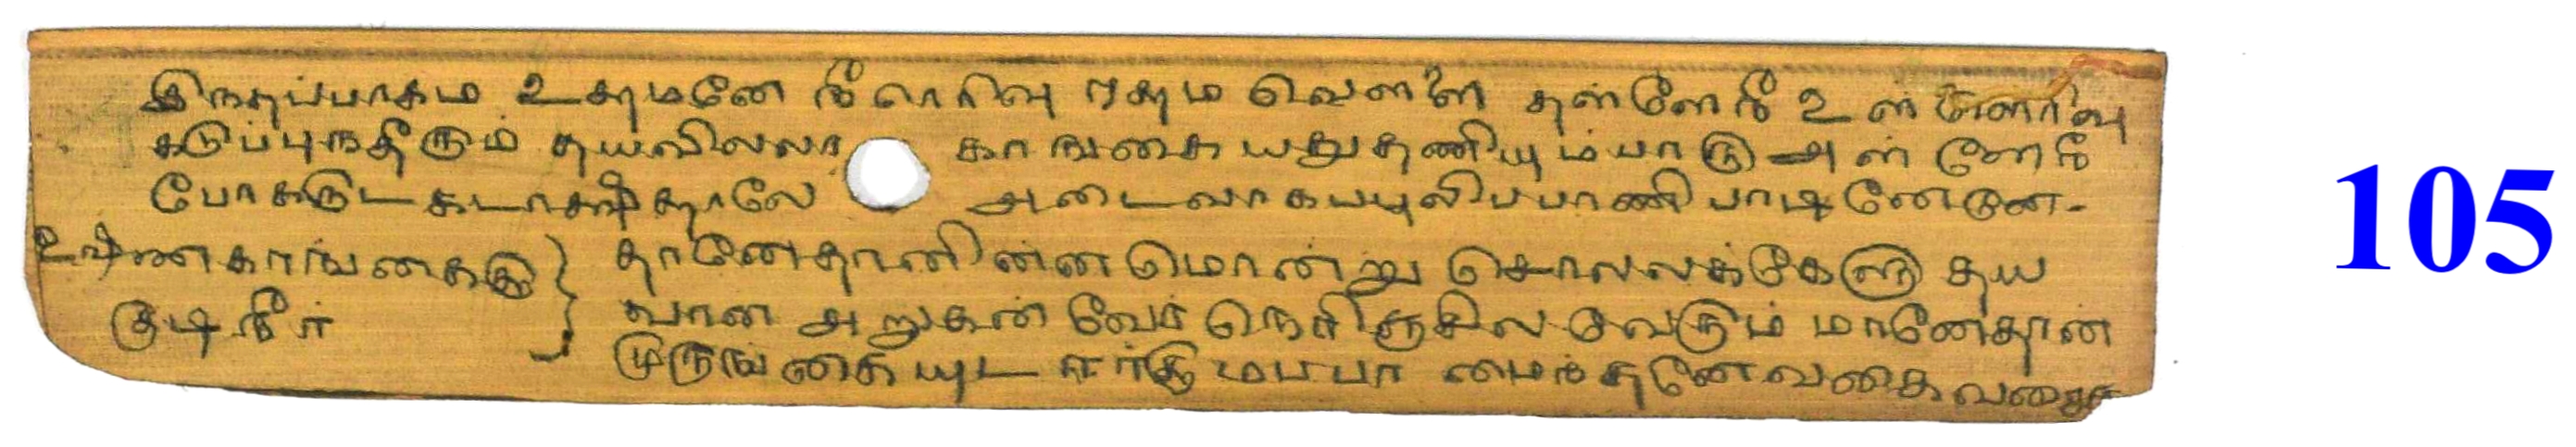 இந்தப்பாகம உதமனே நீரெரிவு ரதம வெளளை தள்ளேநீ உள்ளெரிவு
கடுப்புநதீரும் தயவிலலா காஙகை யதுதணியும்பாரு அள்ளேநீ
போகருட கடாக்ஷிதாலே அடைவாகபபுலிபபாணி பாடினேனே-
உஷ்ணகாங்கைகு
குடிநீர்
தானேதானின்னமொன்று சொலலக்கேளு தய
வான அறுகன் வேர் நெரிஞசில வேரும் மானேதான்
முருங்கையுட ஈர்குமபபா மைந்தனேவகைவகைக
105